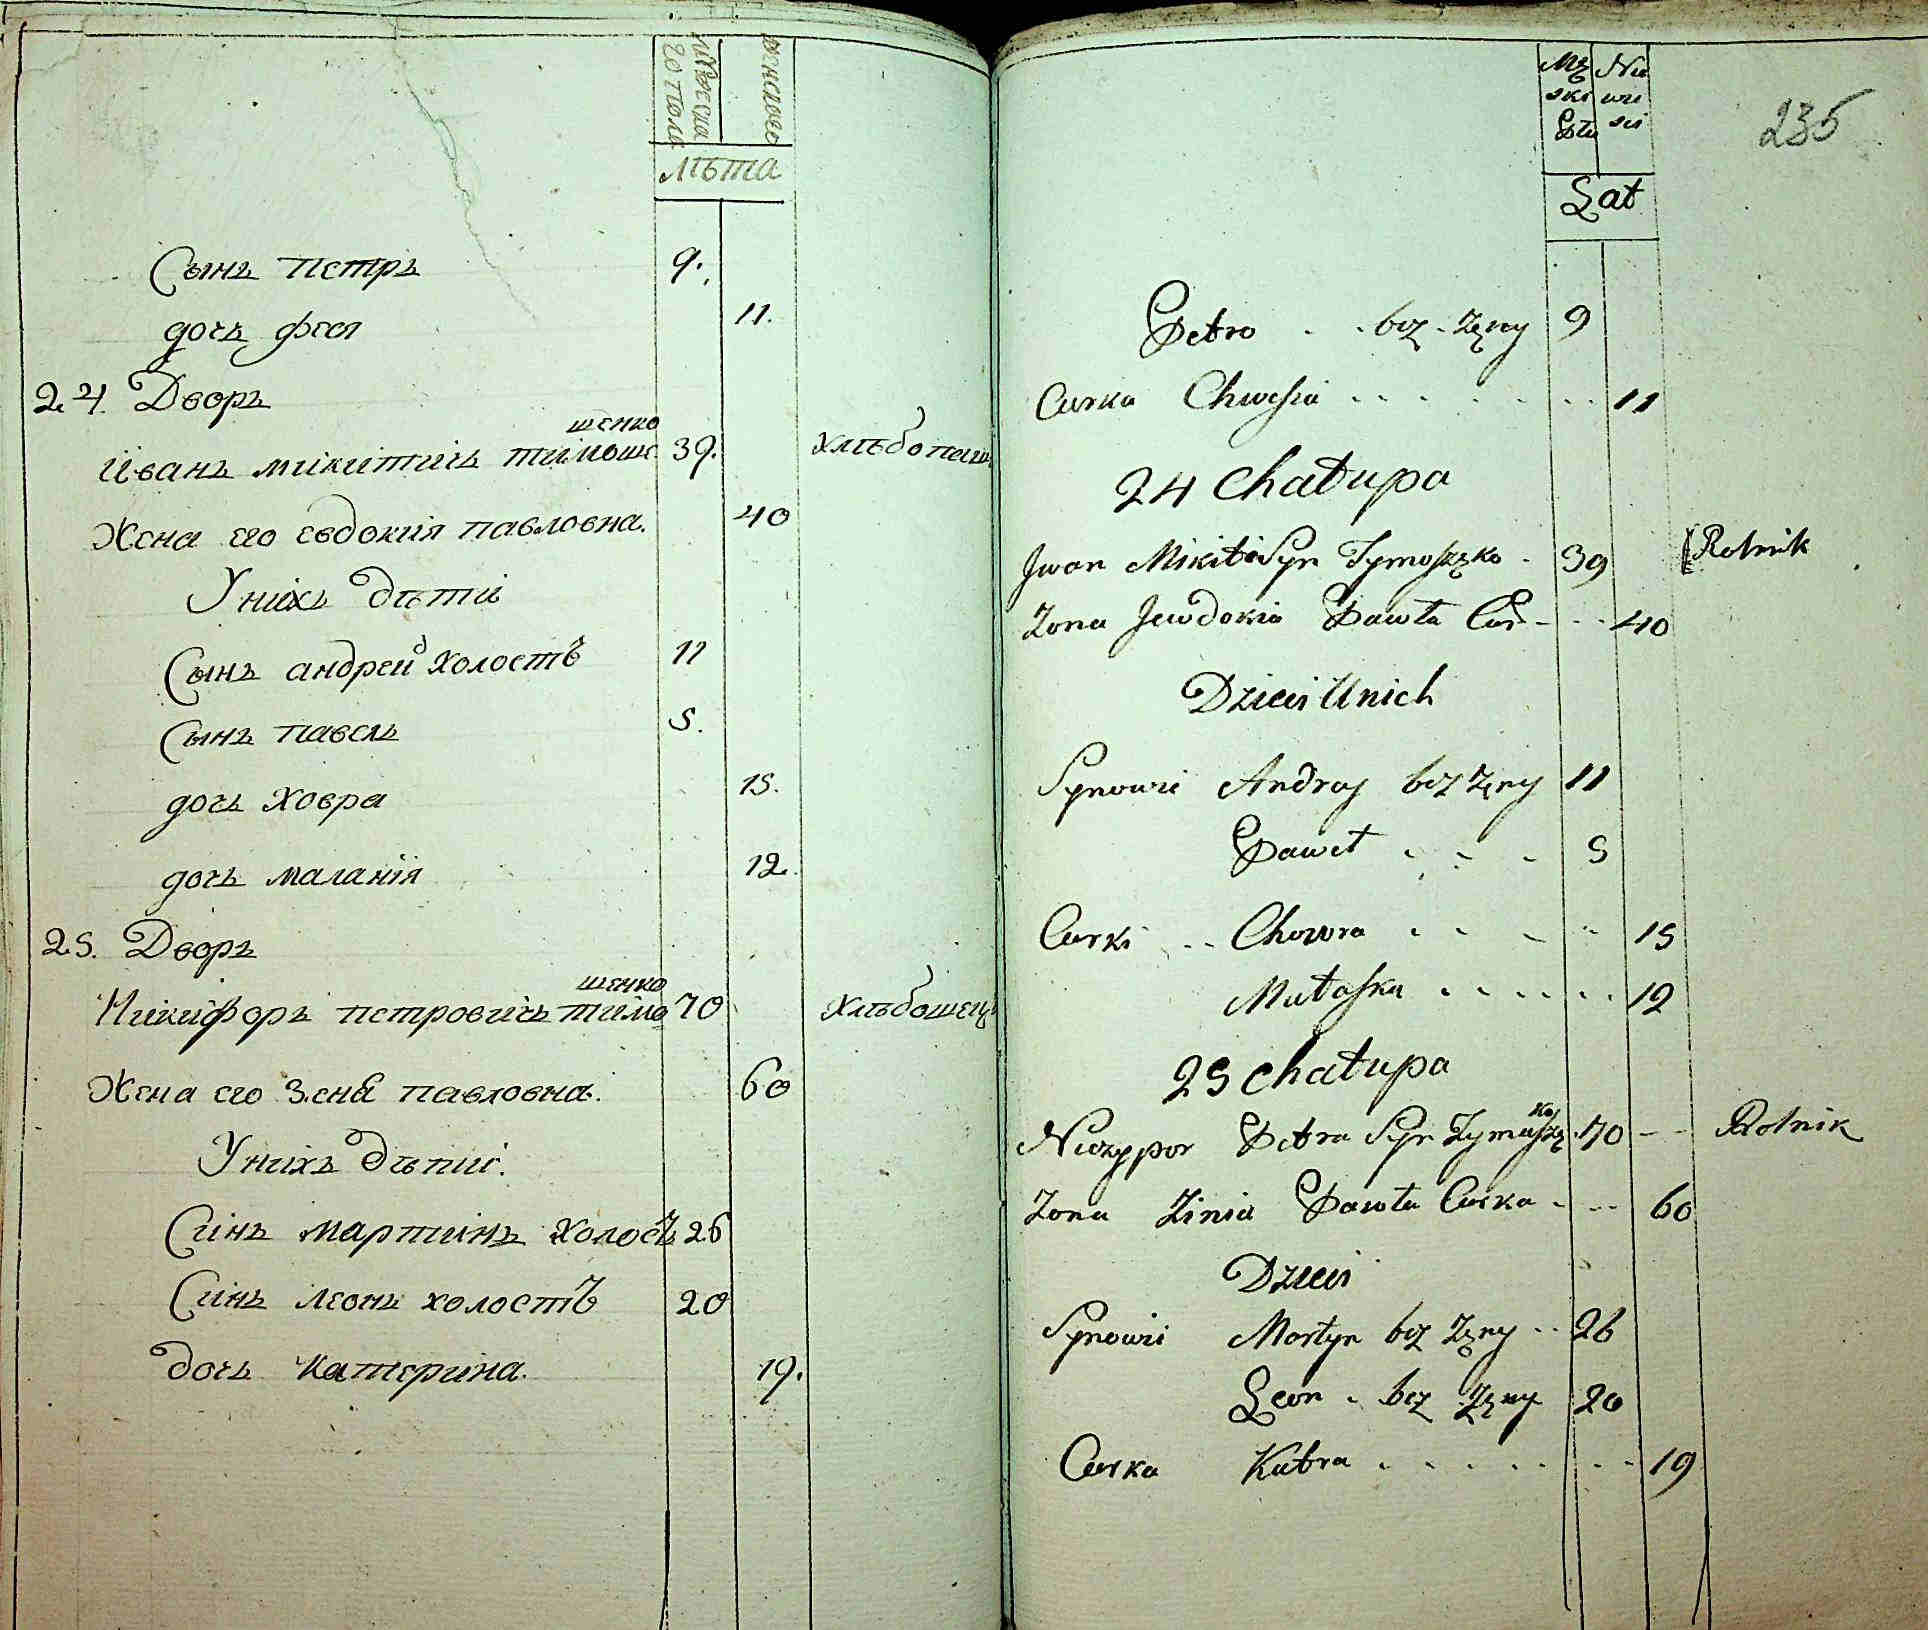 мужеска
го пола
женского
лѣта
Сынъ петръ 9.
дочь феся 11.
24. Дворъ
шенко
иванъ микитичь тимоше 39. хлѣбопашъ
Жена его евдокия павловна. 40
У нихъ дѣти
Сынъ андрей холостъ 11
Сынъ павелъ 5.
дочь ховра 15.
дочь маланія 12.
25. Дворъ
шенко
Никифоръ петровичь тимо 70
Жена его Зеня павловна. 60
У нихъ дѣти.
Синъ мартинъ холостъ 26
Синъ леонъ холостъ 20
дочь катерина. 19.
Mę Nie
ski wie
Płci sci
235
Lat
Petro . . bez - Zęny 9
Curka Chwesia . . . . . . . 11
24 Chałupa
Jwan Mikita Syn Tymoszęko - 39 Rolnik
Zona Jewdokia Pawła Cur - . . 40
Dzieci Unich
Synowie Andrey bez Zęny 11
Paweł . . - 5
Curki . . Chowra . . . . 15
Małaszka . . . . . . 12
25 Chałupa
ko
Niczypor Petra Syn Tymaszę 70 - - Rolnik
Zona Zinia Pawła Curka - - . . 60
Dzieci
Synowie Martyn bez Zęny . . 26
Leon . bez Zęny 20
Curka Katra . . . . . . . 19